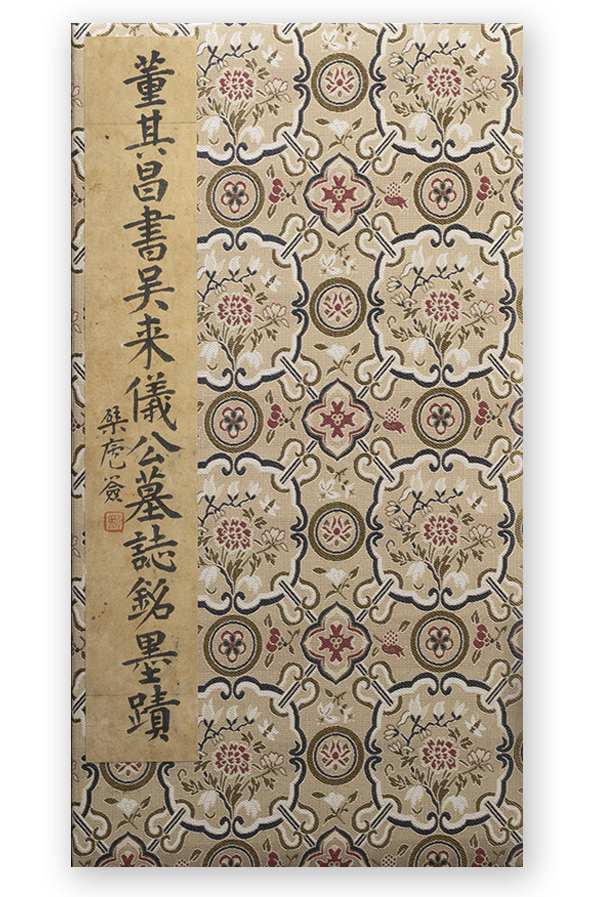 董其昌書吴来儀公墓誌銘墨蹟